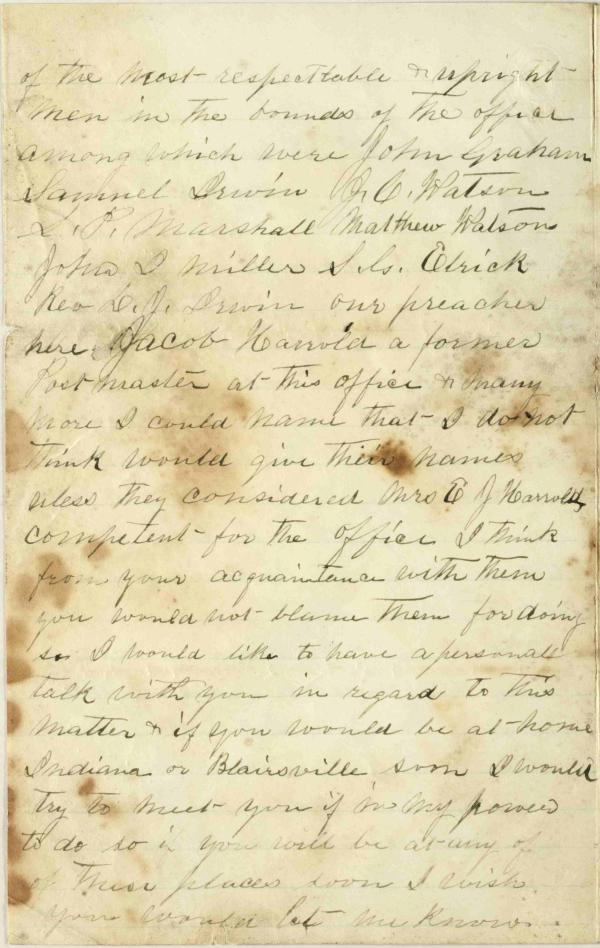 of the most respecttable & upright
men in the bounds of the office
among which were John Graham
Samuel Irwin J. C. Watson
L. P. Marshall Matthew Watson
John I Miller S. G. Elrick
Rev L. J. Irwin our preacher
here. Jacob Harrold a former
Postmaster at this office & many
more I could name that I do not
think would give their names
unless they considered Mrs E J Harrold
competent for the office I think
from your acquaintance with them
you would not blame them for doing
so I would like to have a personal
talk with you in regard to this
matter & if you would be at home
Indiana or Blairsville soon I would
try to meet you if in my power
to do so if you will be at any of
of these places soon I wish
you would let me know